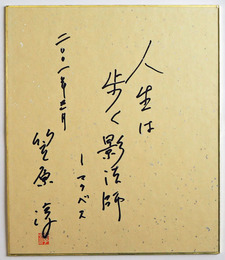 人生は
歩く影法師
ーマクベス
二〇〇一年三月
笠原淳